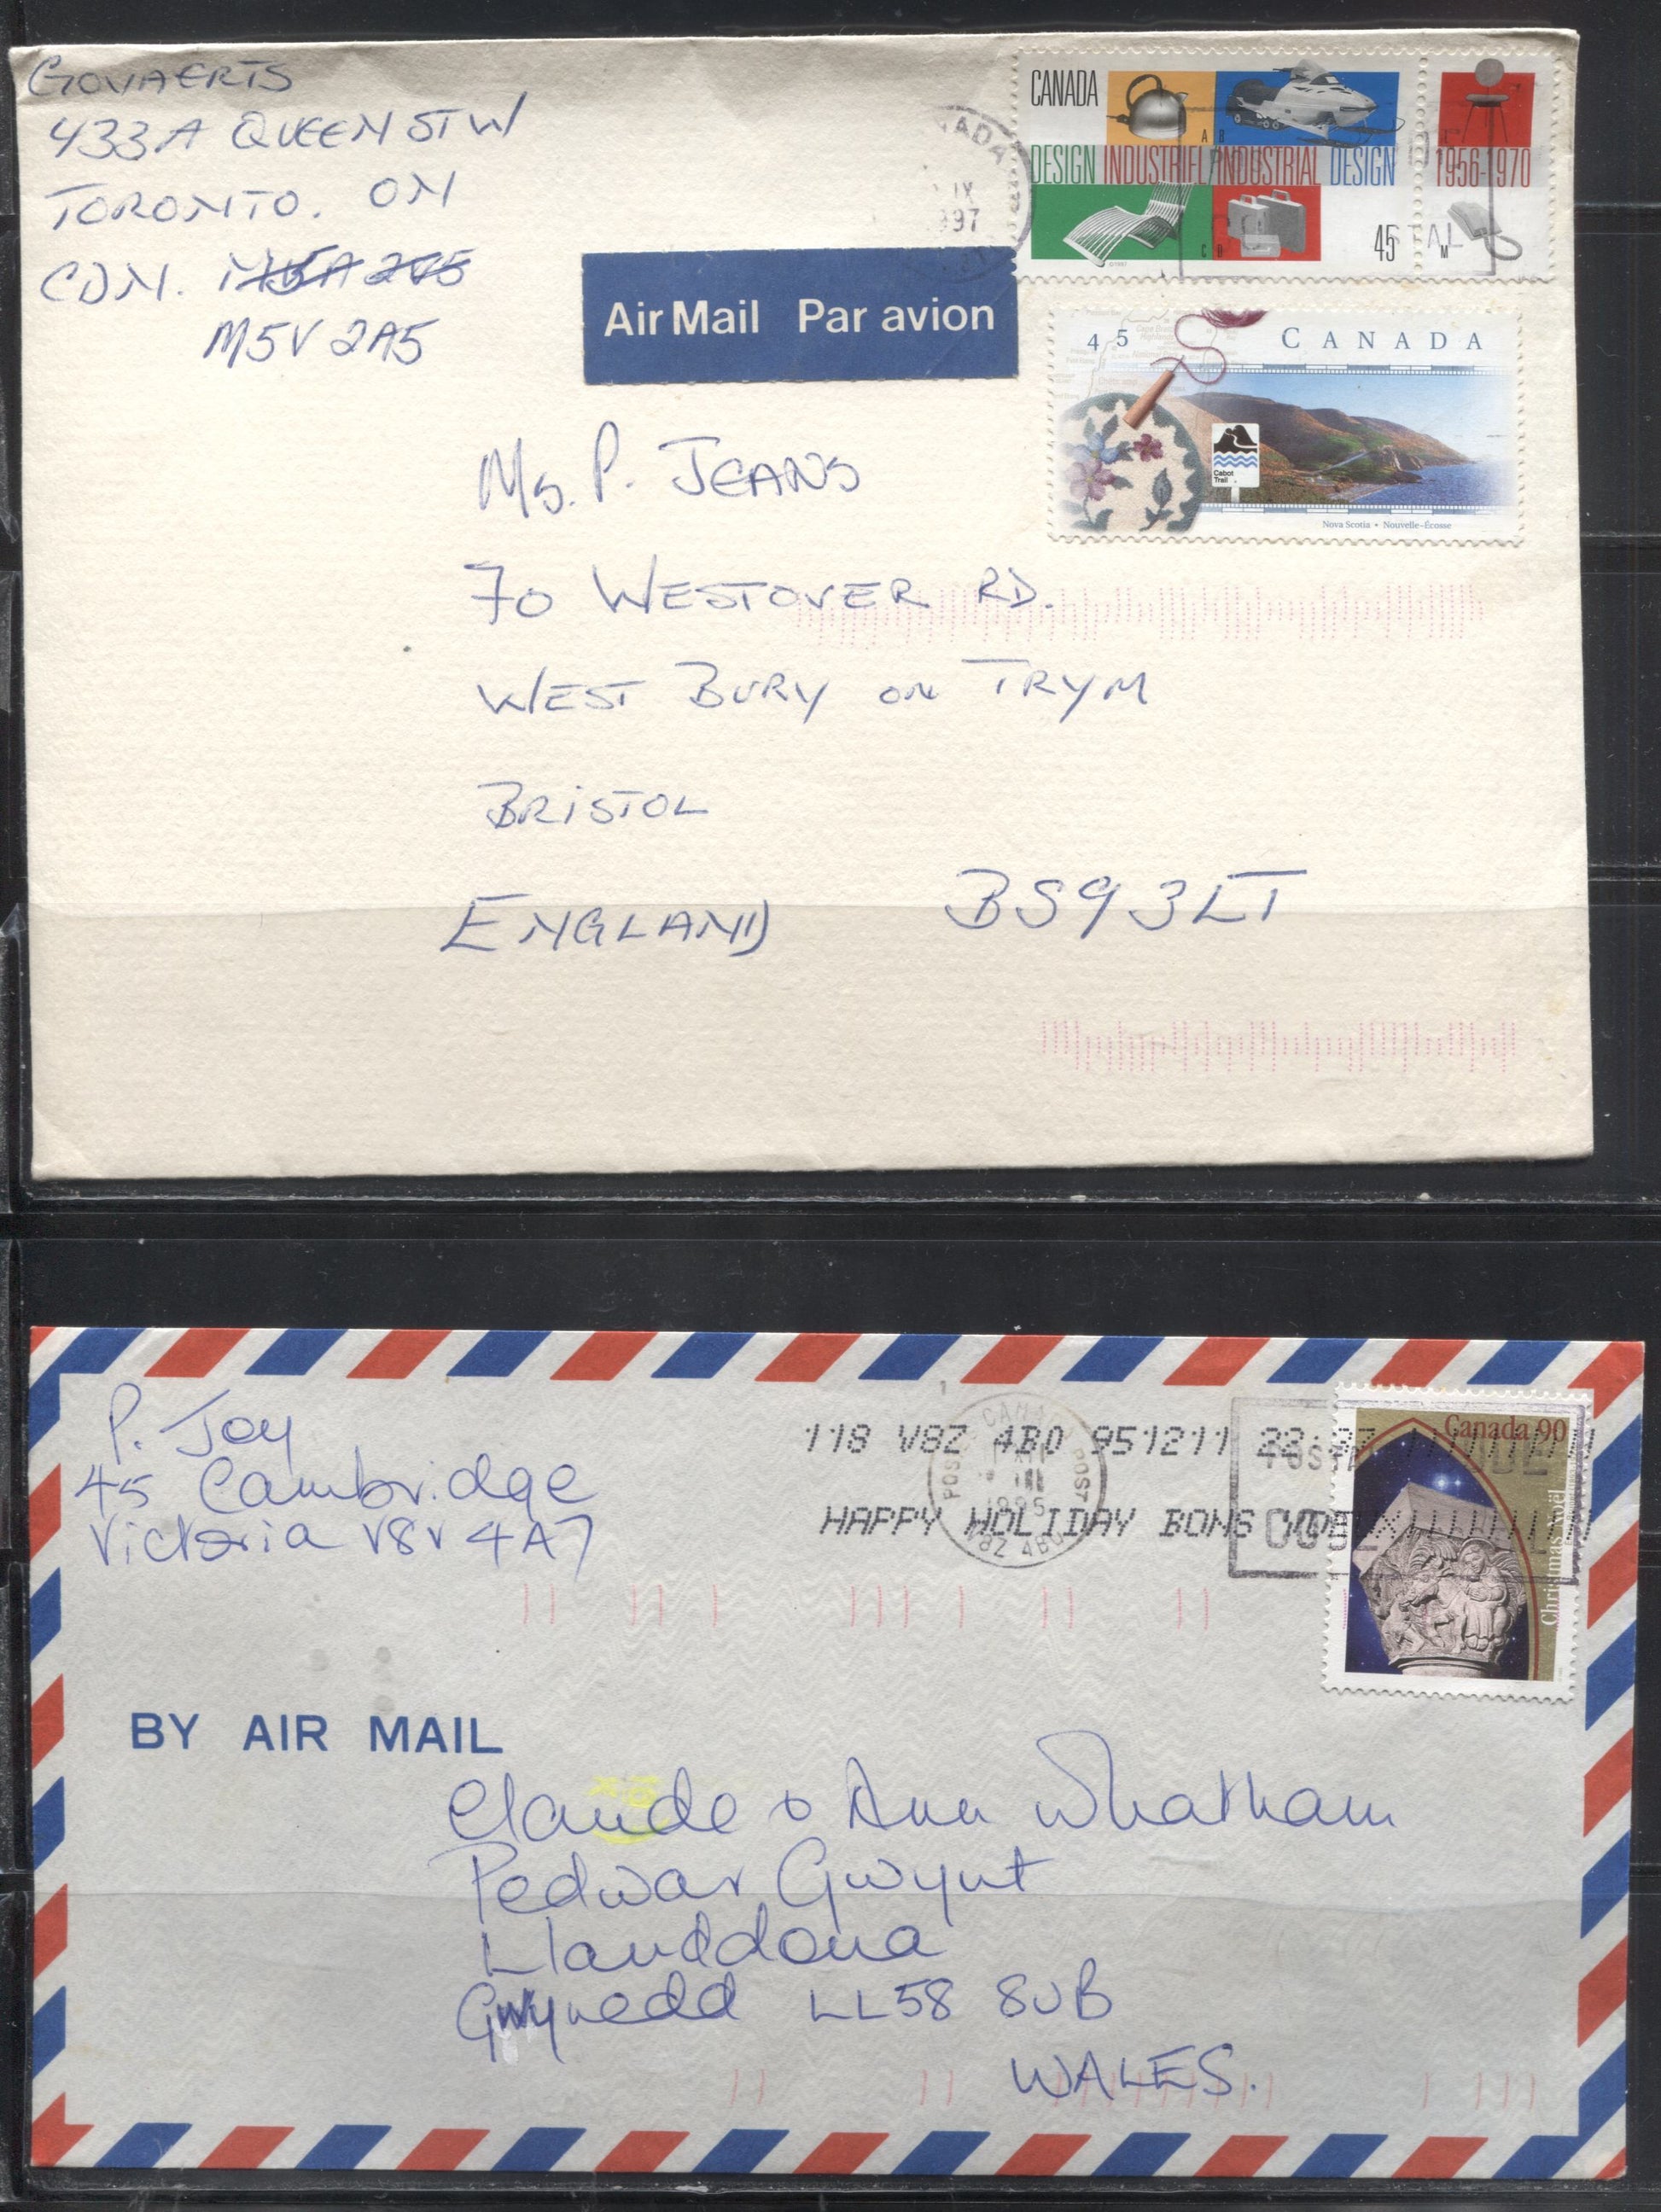 GOVAERTS
433A QUEEN ST W
TORONTO. ON
CDN. M5A 2G5
M5V 2A5
CANADA
DESIGN INDUSTRIEL/INDUSTRIAL DESIGN 1956-1970
A B
C D
45
M
ADA
IX
997
Air Mail Par avion
45 CANADA
Cabot
Trail
Nova Scotia • Nouvelle-Écosse
Ms. P. JEANS
70 WESTOVER RD.
WEST BURY ON TRYM
BRISTOL
ENGLAND BS9 3LT
P. Joy
45 Cambridge
Victoria V8V 4A7
118 V8Z 4B0 951211 22:37
HAPPY HOLIDAY BONS VOEUX
CANADA
POST
1995
V8Z 4B0
Canada 90
Christmas Noël
BY AIR MAIL
Claude & Ann Whatham
Pedwar Gwynt
Llanddona
Gwynedd LL58 8UB
WALES.